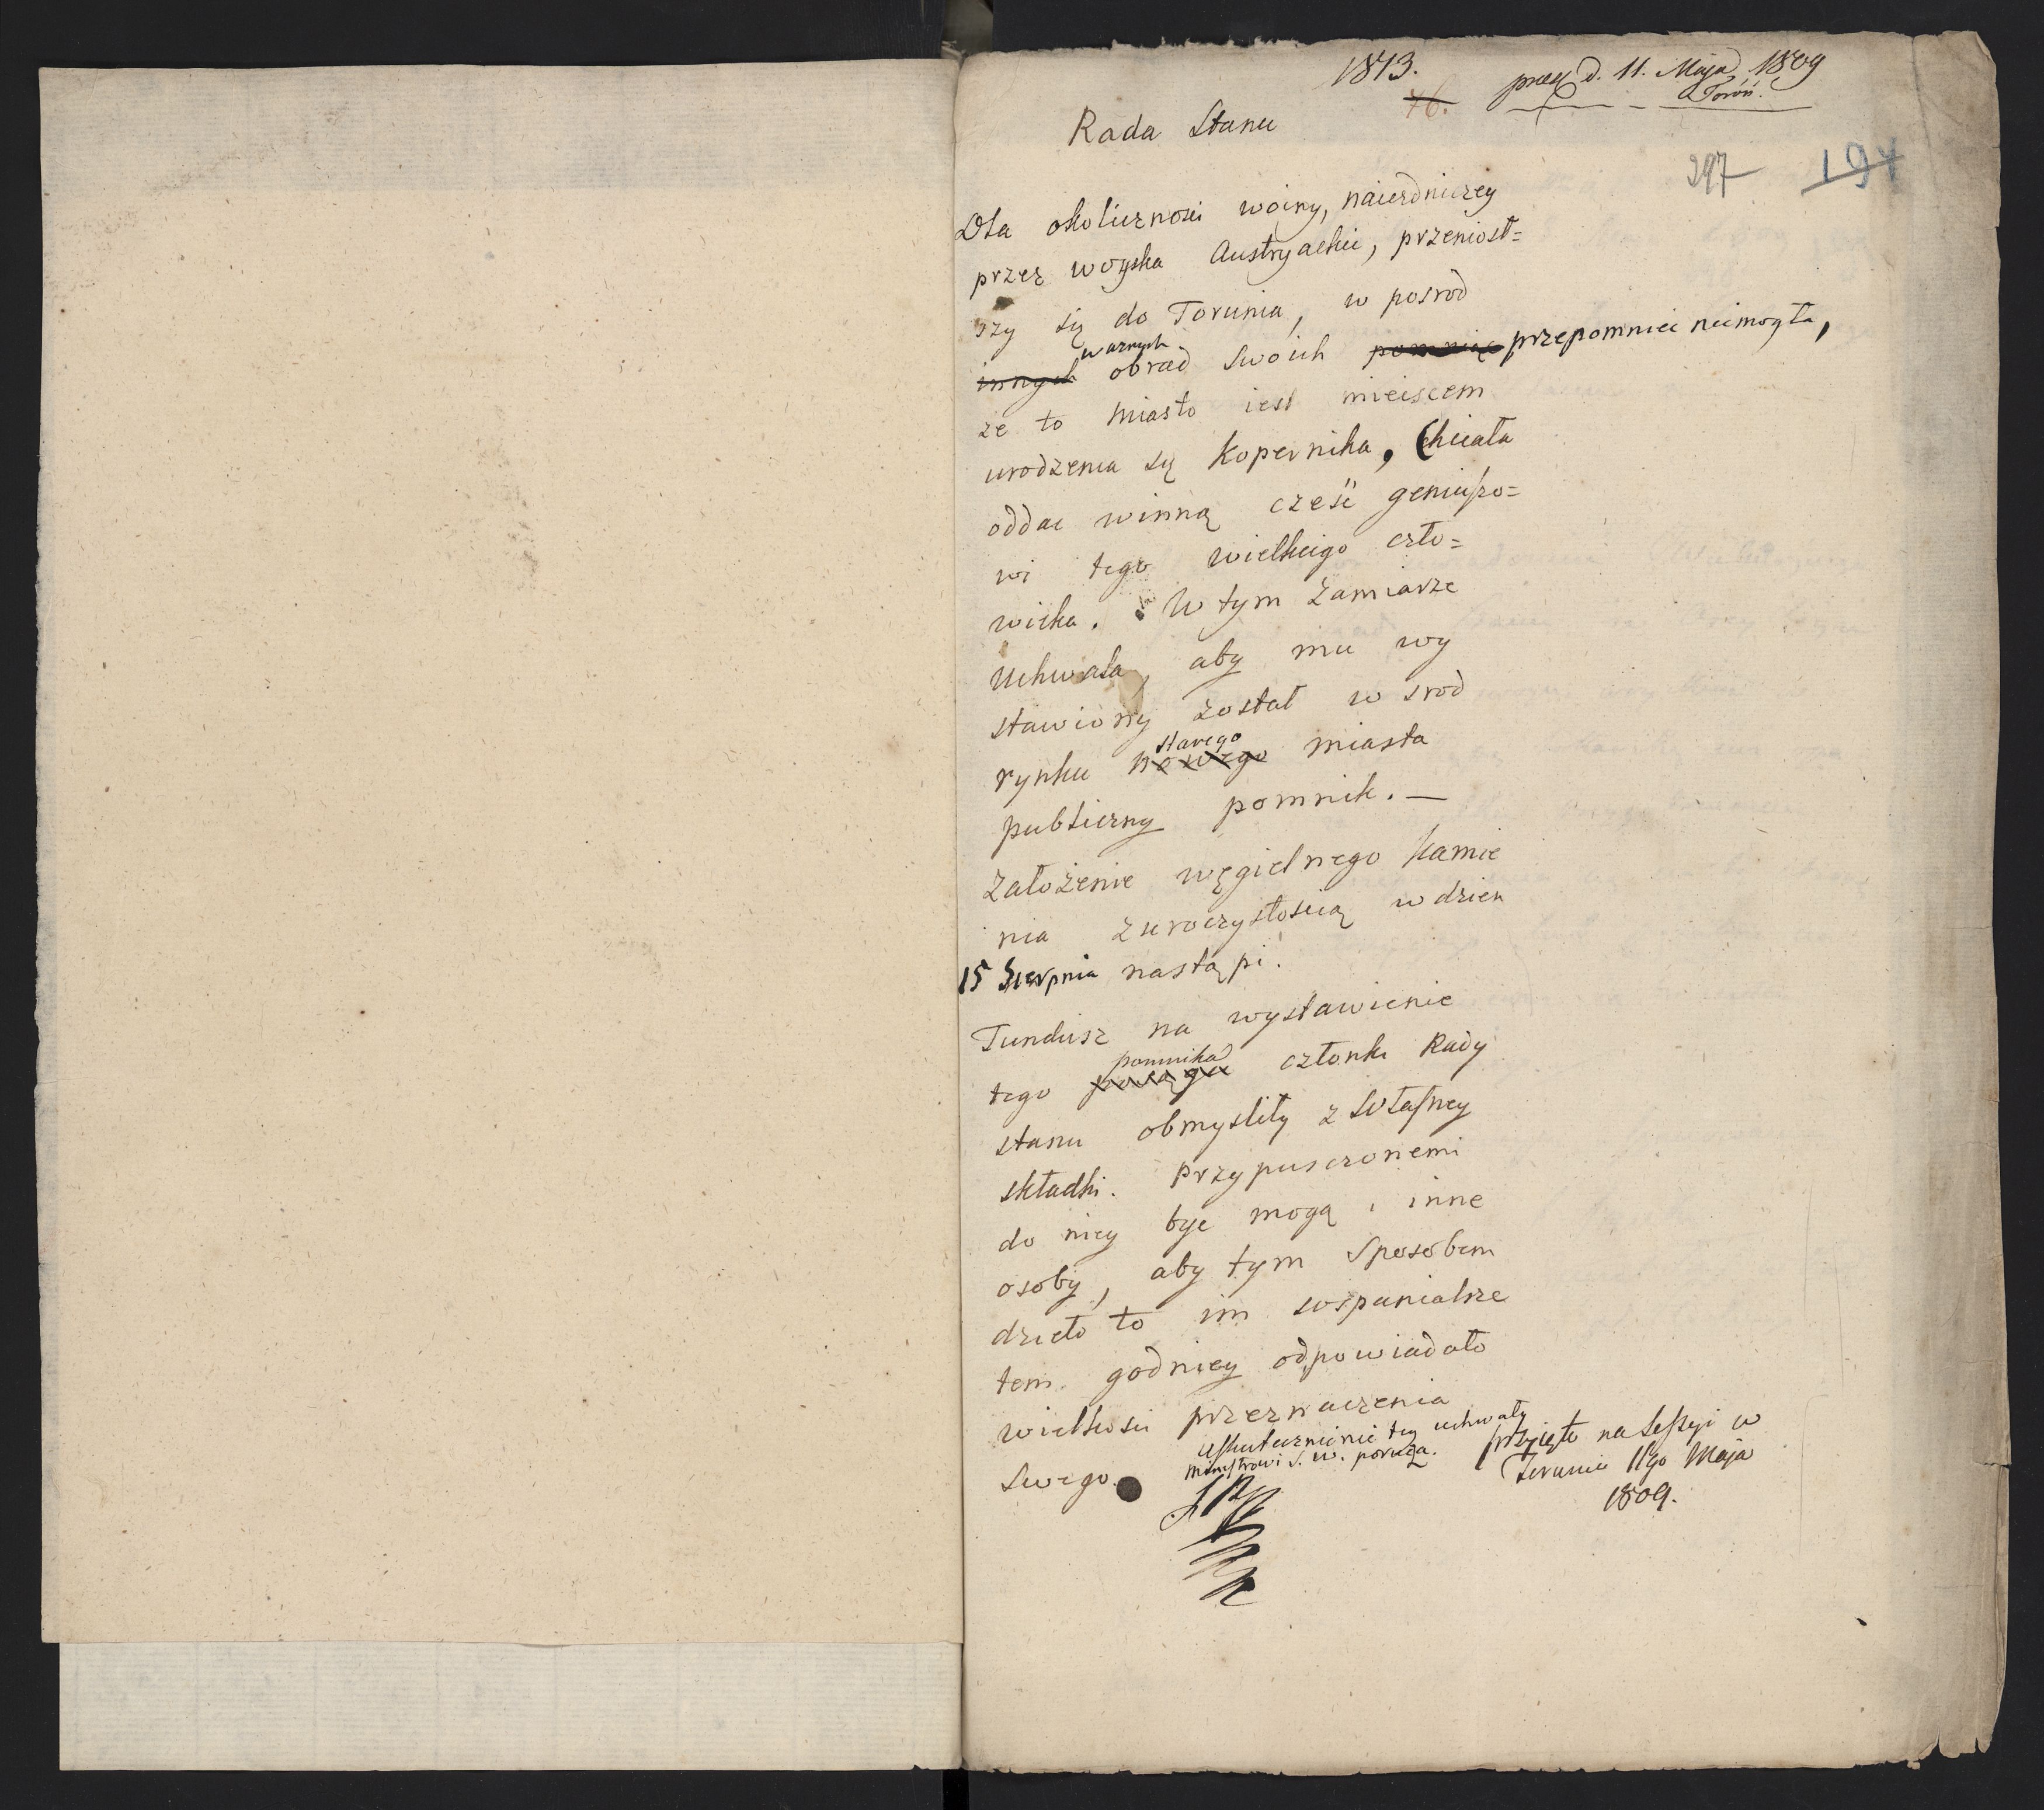 1873.
76.
praes. d. 11. Maja 1809
Toruń.
297 194
Rada Stanu
Dla okolicznosci woiny, naiezdniczey
przez woyska Austryackie, przeniosł=
szy się do Torunia, w posrod
innych waznych obrad swoich pomniąc przepomniec niemogła,
ze to miasto iest mieiscem
urodzenia się Kopernika, Chciała
oddac winną cześć geniuszo=
wi tego wielkiego czło=
wieka. W tym zamiarze
uchwala, aby mu wy
stawiony został w srod
rynku nowego starego miasta
publiczny pomnik. —
Założenie węgielnego kamie
nia z uroczystoscią w dzien
15 Sierpnia nastąpi.
Fundusz na wystawienie
tego posągu pomnika członki Rady
stanu obmysliły z własney
składki. Przypuszczonemi
do niey byc mogą i inne
osoby, aby tym sposobem
dzieło to im wspanialsze
tem godniey odpowiadało
wielkosci przeznaczenia
swego.
uskutecznienie tey uchwały
Ministrowi S. W. porucza.
przyięto na Sessyi w
Toruniu 11go Maja
1809.